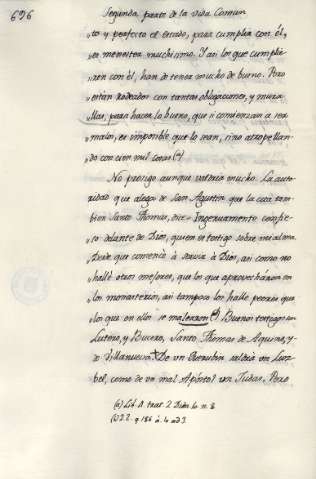 696
Segunda parte de la vida Comun
to y perfecto el estado, para cumplir con él,
es menester muchisimo. Y asi los que cumplie
ren con él, han de tener mucho de bueno. Pero
estan rodeados con tantas obligaciones, y mura
llas, para hacer lo bueno, que si comienzan a ser
malos, es imposible que lo sean, sino atropellan
do con cien mil cosas (a)
No prosigo aunque valeria mucho. La auto
ridad que alega de San Agustin que la cita tam
bien Santo Thomas, dice = Ingenuamente confie
so delante de Dios, quien es testigo sobre mi alma
desde que comencé à servir à Dios, asi como no
hallé otros mejores, que los que aprovecharon en
los monasterios, asi tampoco los halle peores que
los que en ello se malearon (b) Buenos testigos son
Lutero, y Bucero, Santo Thomas de Aquino, y
de Villanueva. De un Querubin salió un Luz
bel, como de un mal Apóstol un Judas. Pero
(a) Lib. 1. trat. 2
(b) 2.2. q 186 a. 10 ad 3